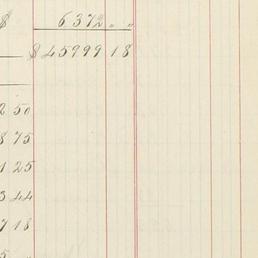 $ 6372 " "
$45999 18
2 50
8 75
1 25
3 44
7 18
5 "